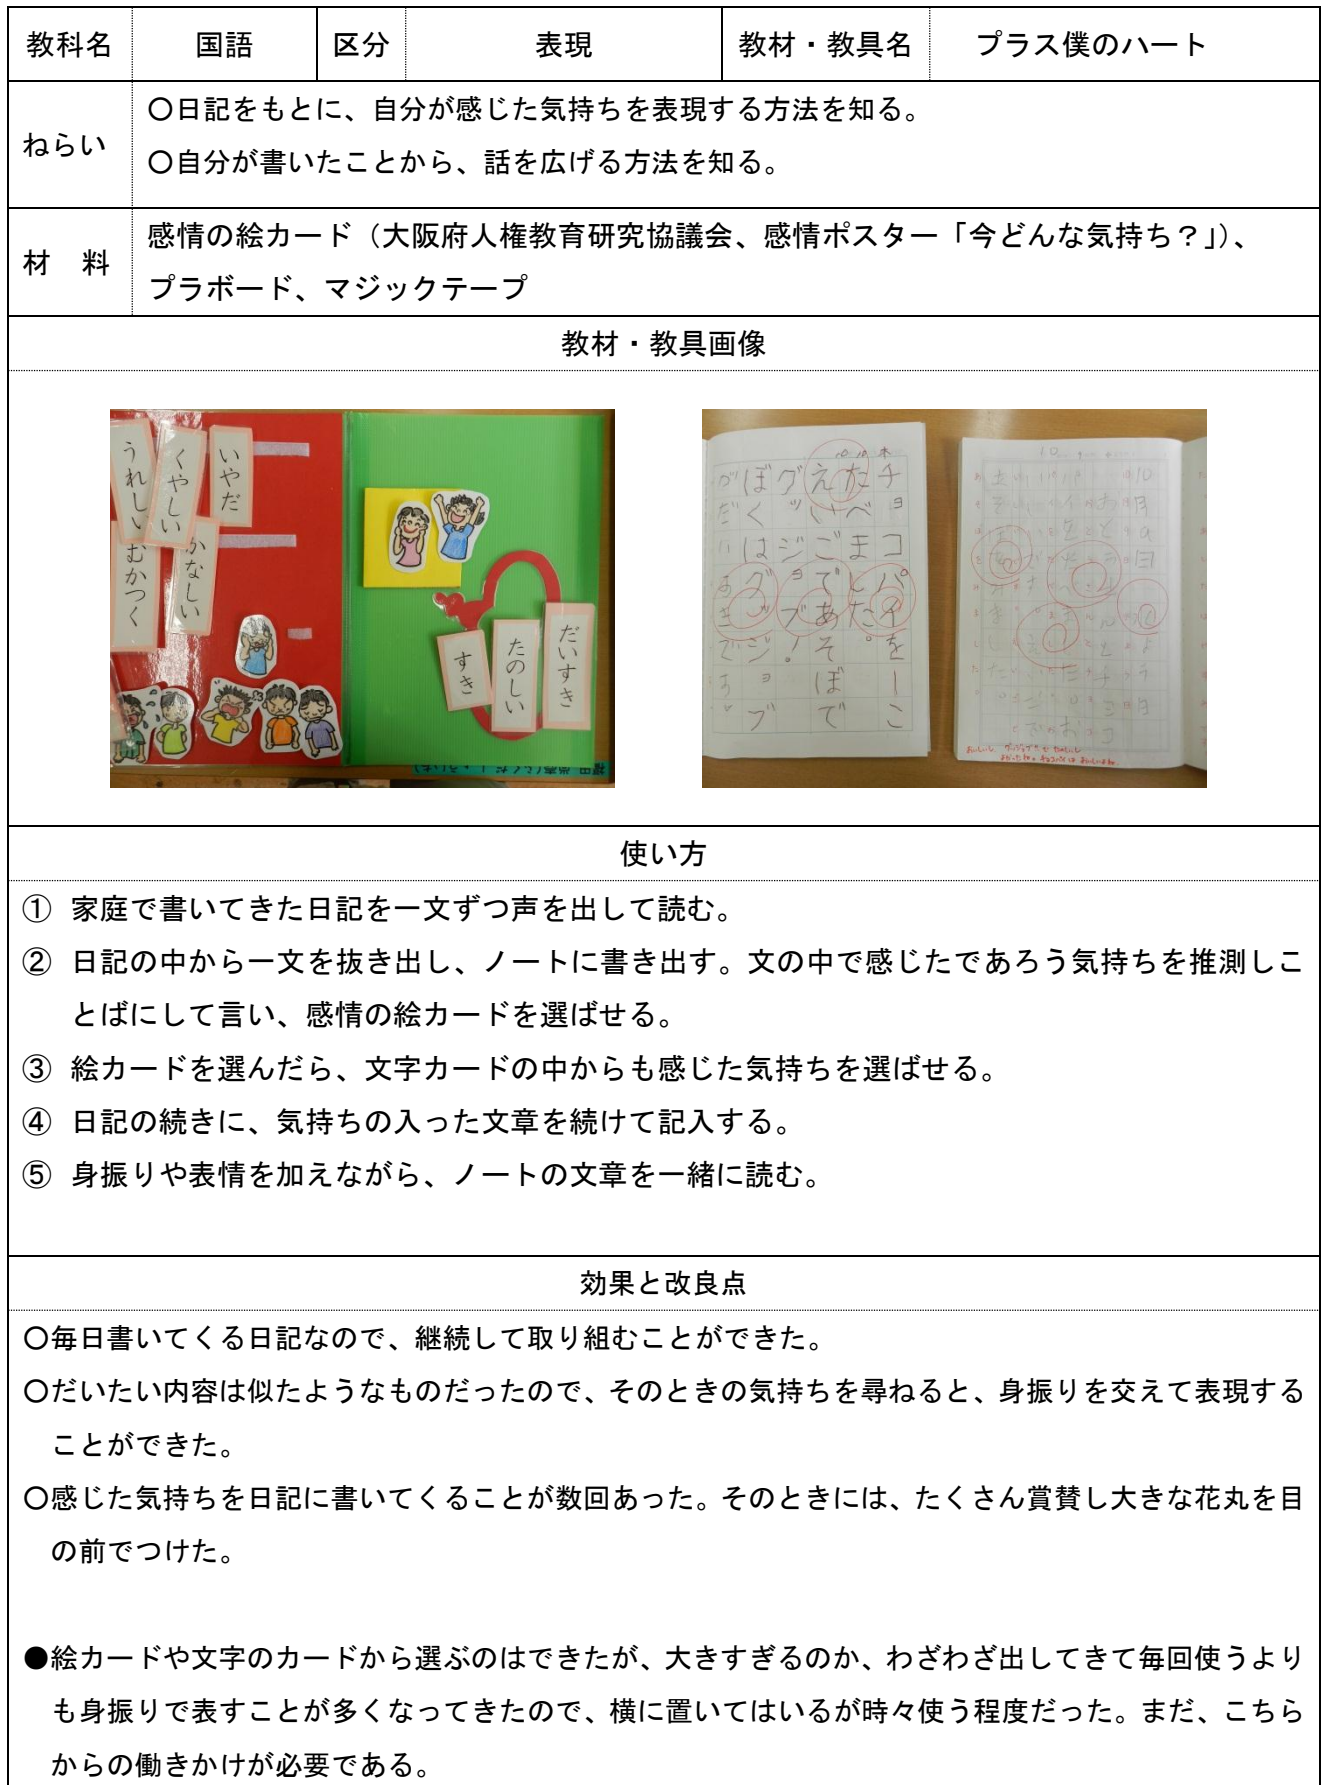 教科名 国語 区分 表現 教材・教具名 プラス僕のハート
ねらい
〇日記をもとに、自分が感じた気持ちを表現する方法を知る。
〇自分が書いたことから、話を広げる方法を知る。
材 料
感情の絵カード（大阪府人権教育研究協議会、感情ポスター「今どんな気持ち？」）、
プラボード、マジックテープ
教材・教具画像
うれしい
くやしい
いやだ
むかつく
かなしい
すき
たのしい
だいすき
チョコパイを一こ
たべました。
えいごであそぼで
グッジョブ！
ぼくはグッジョブ
使い方
① 家庭で書いてきた日記を一文ずつ声を出して読む。
② 日記の中から一文を抜き出し、ノートに書き出す。文の中で感じたであろう気持ちを推測しこ
とばにして言い、感情の絵カードを選ばせる。
③ 絵カードを選んだら、文字カードの中からも感じた気持ちを選ばせる。
④ 日記の続きに、気持ちの入った文章を続けて記入する。
⑤ 身振りや表情を加えながら、ノートの文章を一緒に読む。
効果と改良点
〇毎日書いてくる日記なので、継続して取り組むことができた。
〇だいたい内容は似たようなものだったので、そのときの気持ちを尋ねると、身振りを交えて表現する
ことができた。
〇感じた気持ちを日記に書いてくることが数回あった。そのときには、たくさん賞賛し大きな花丸を目
の前でつけた。
●絵カードや文字のカードから選ぶのはできたが、大きすぎるのか、わざわざ出してきて毎回使うより
も身振りで表すことが多くなってきたので、横に置いてはいるが時々使う程度だった。まだ、こちら
からの働きかけが必要である。